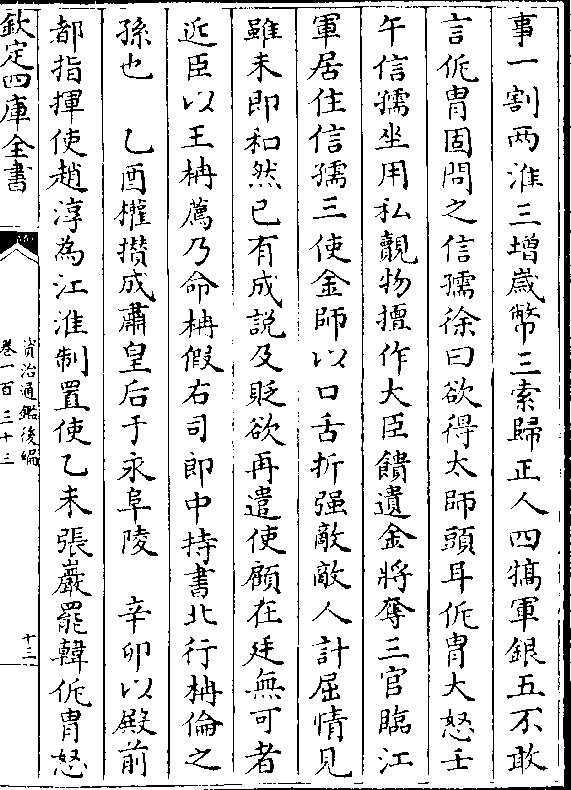 事一割两淮三増歳幣三索歸正人四犒軍銀五不敢
言侂胄固問之信孺徐曰欲得太師頭耳侂胄大怒壬
午信孺坐用私覿物擅作大臣饋遺金將奪三官臨江
軍居住信孺三使金師以口舌折强敵敵人計屈情見
雖未即和然已有成說及貶欲再遣使顧在廷無可者
近臣以王柟薦乃命柟假右司郎中持書北行柟倫之
孫也　乙酉權攅成肅皇后于永阜陵　辛卯以殿前
都指揮使趙淳為江淮制置使乙未張巖罷韓侂胄怒
欽定四庫全書
資治通鑑後編
卷一百三十三
十三